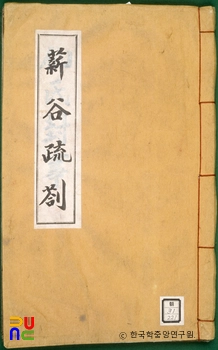 薪谷疏劄
© 한국학중앙연구원